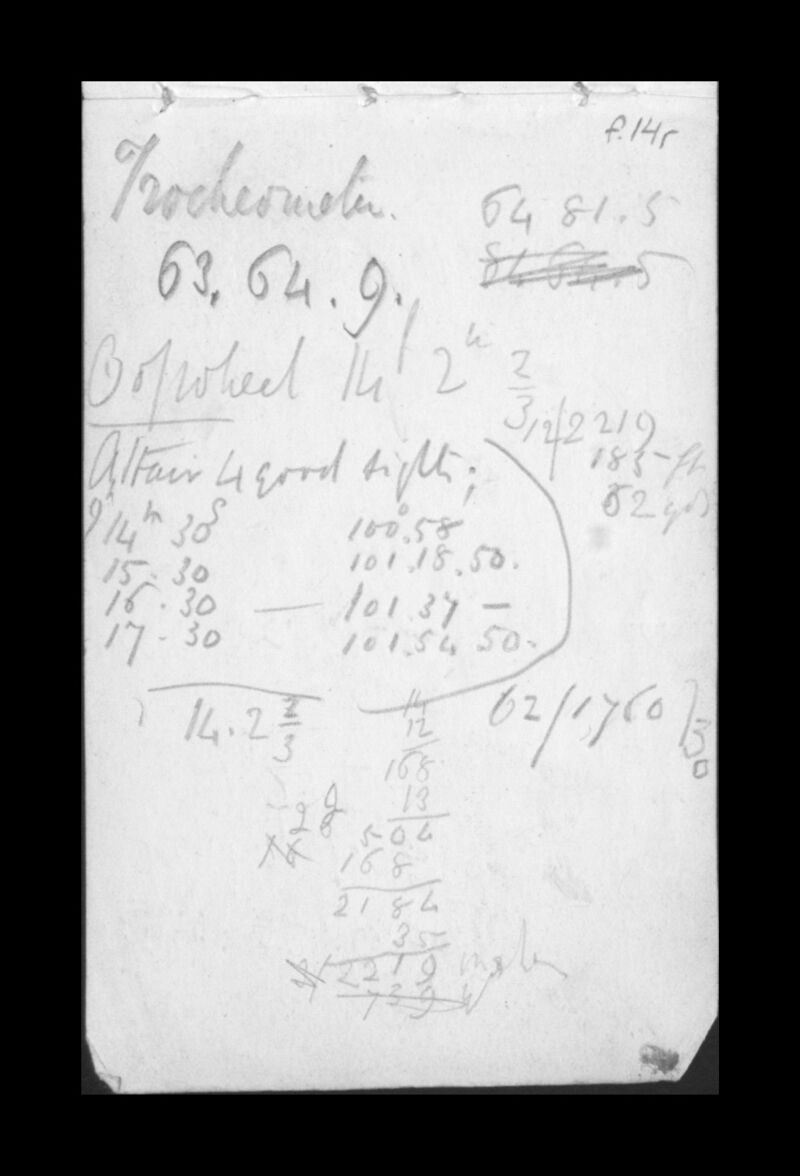 f.14r
Trocheometer.
64 81.5
63. 64. 9.
O of wheel 14' 2" 2/3
12/2219
185 ft
62 yds
Altair 4 good sights;
14 h 30 s 100°.58
15. 30 101.18.50.
16. 30 — 101.37 —
17. 30 101.54.50.
14. 2 2/3
62/1760
14
12
168
13
504
168
2184
35
2219
739